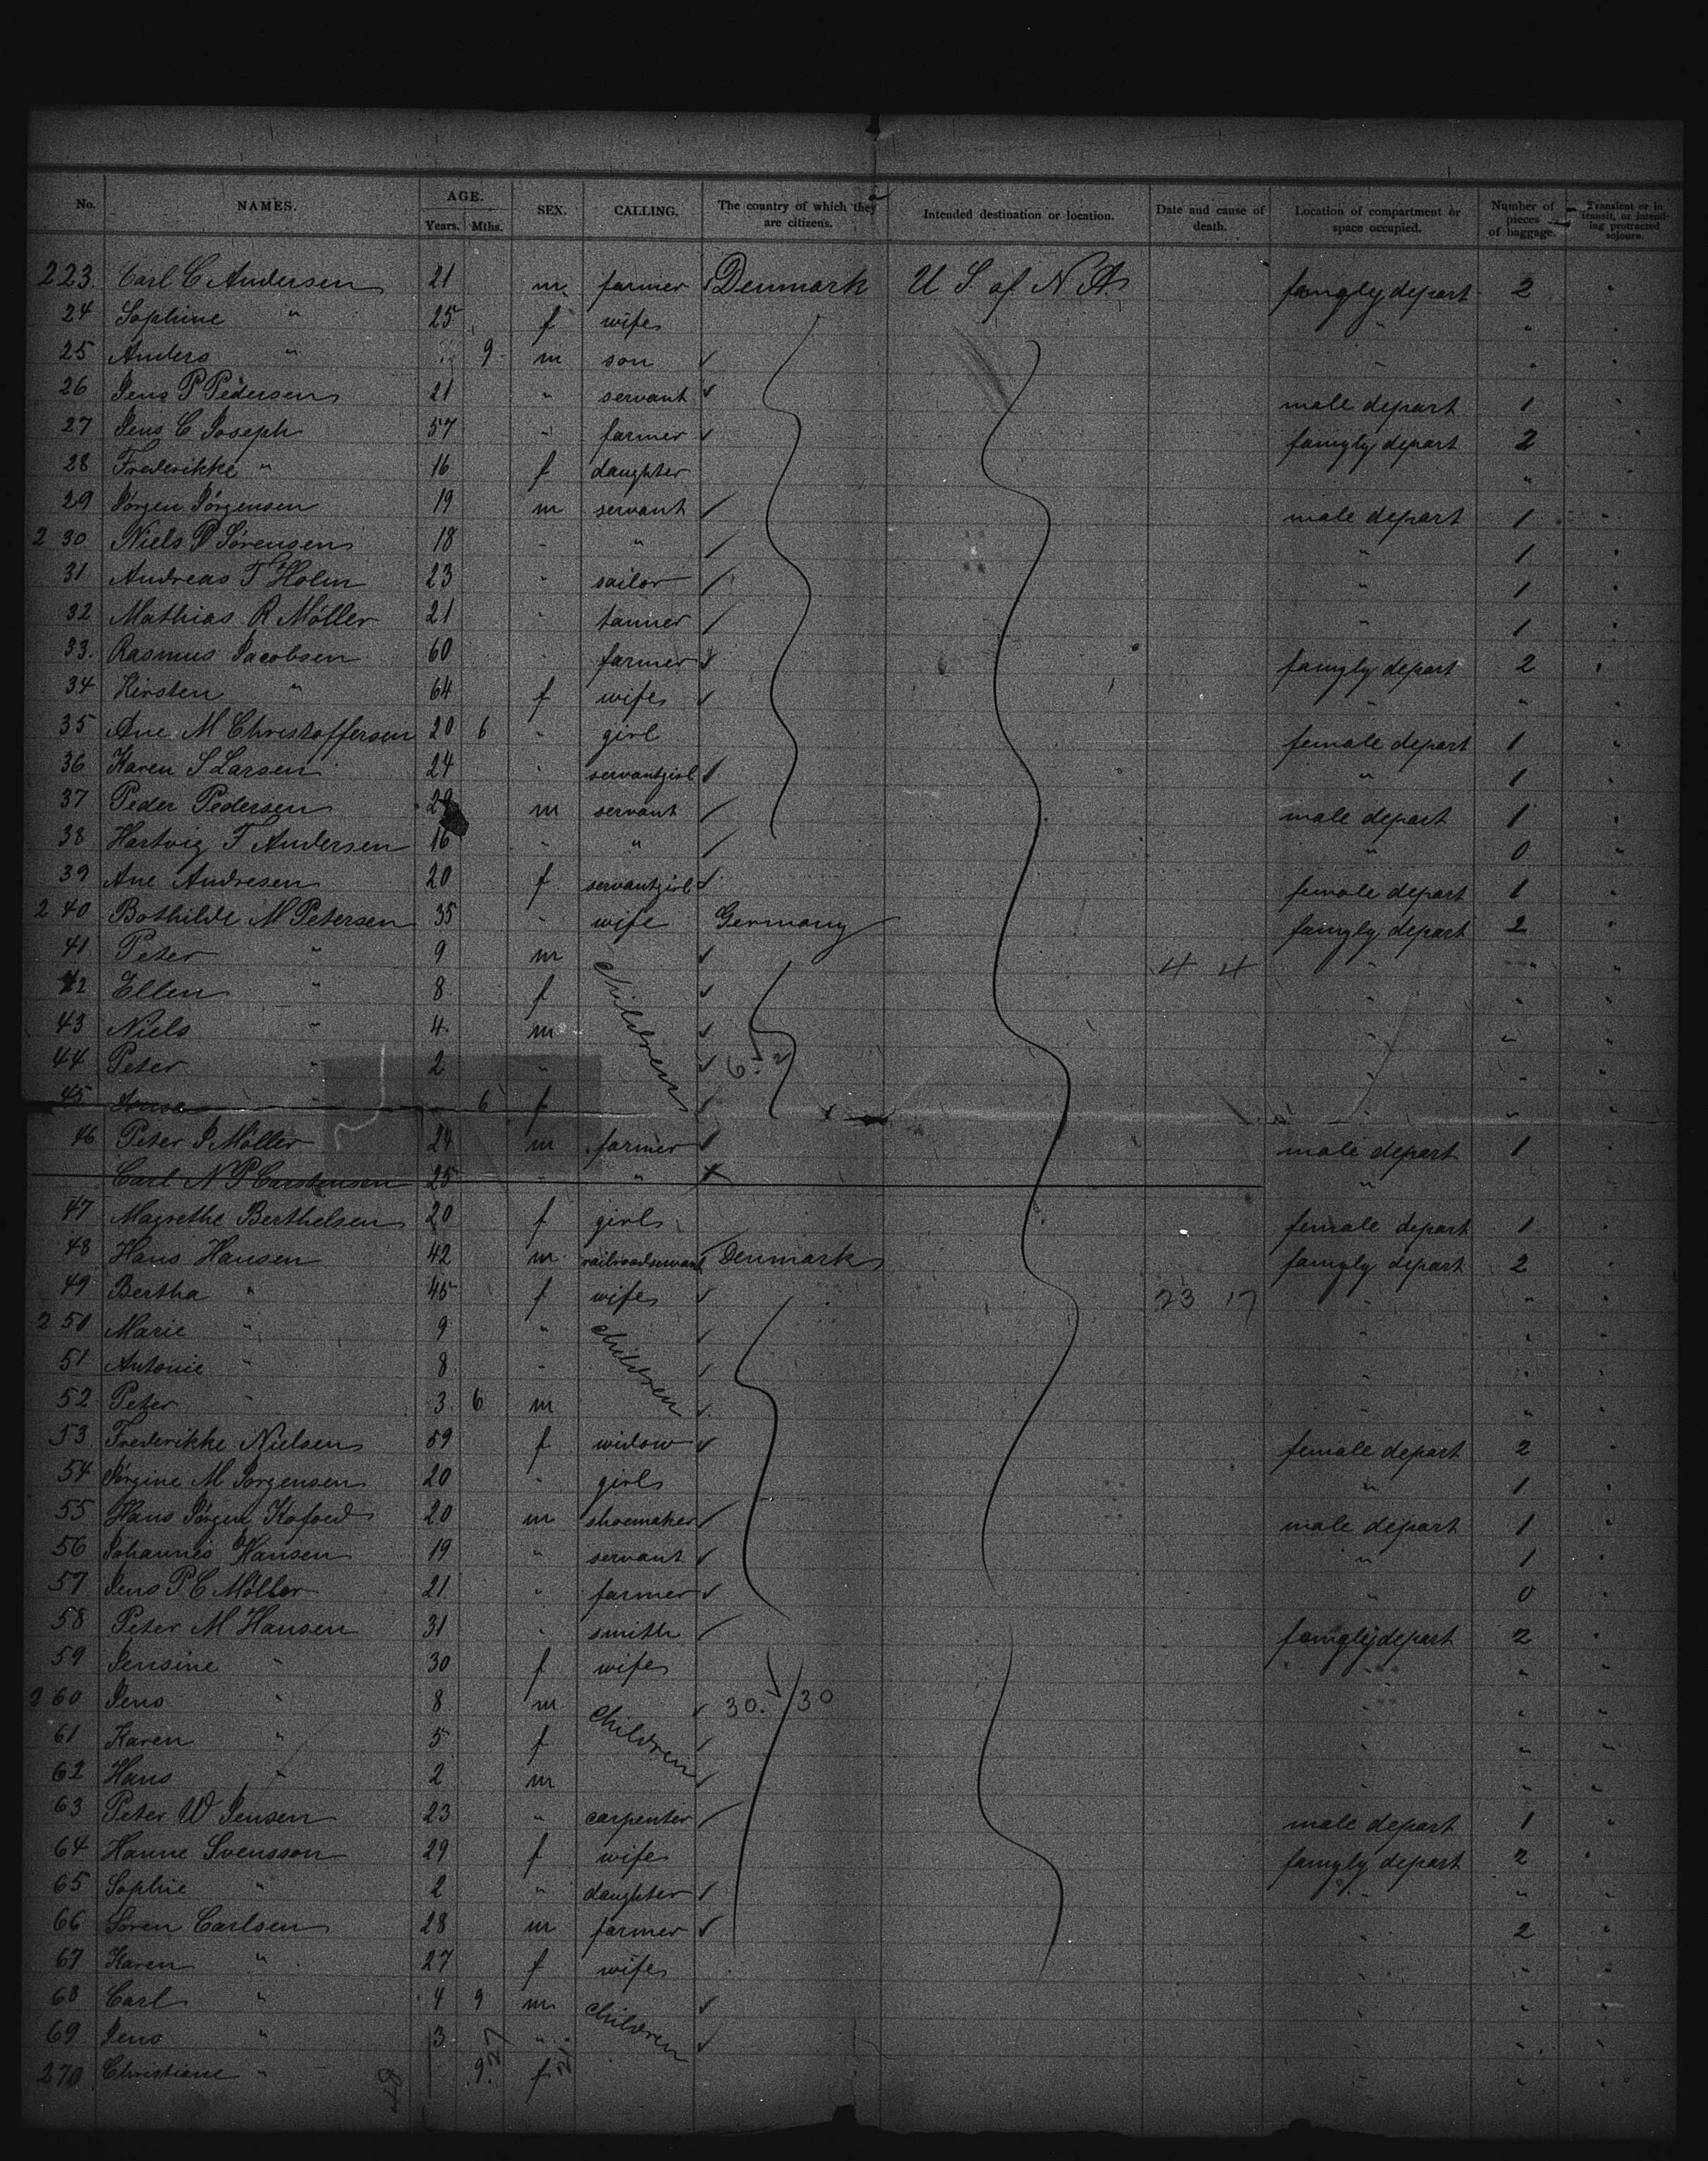 No. NAMES. AGE. Years. Mths. SEX. CALLING. The country of which they are citizens. Intended destination or location. Date and cause of death. Location of compartment or space occupied. Number of pieces of baggage. Transient or in transit, or intending protracted sojourn.
223. Carl C Andersen 21 m. farmer Denmark U S. of N A. famgly depart 2 "
24 Sophine " 25 f wife " "
25 Anders " 9 m son ✓ " " "
26 Jens P Pedersen 21 " servant ✓ male depart 1 "
27 Jens C Joseph 57 " farmer ✓ famgly depart 2 "
28 Frederikke " 16 f daughter " "
29 Jørgen Jørgensen 19 m servant / male depart 1 "
230 Niels P Sørensen 18 " " / " 1 "
31 Andreas T Holm 23 " sailor / " 1 "
32 Mathias R Möller 21 " tanner / " 1 "
33. Rasmus Jacobsen 60 " farmer ✓ famgly depart 2 "
34 Kirsten " 64 f wife ✓ " " "
35 Ane M Christoffersen 20 6 " girl female depart 1 "
36 Karen S Larsen 24 " servantgirl / " 1 "
37 Peder Pedersen m servant / male depart 1 "
38 Hartvig F Andersen 16 " " / " 0 "
39 Ane Andresen 20 f servantgirl ✓ female depart 1 "
240 Bothilde M Petersen 35 " wife Germany famgly depart 2 "
41 Peter " 9 m children ✓ 4 4 " " "
42 Ellen " 8 f ✓ " " "
43 Niels " 4 m ✓ " " "
44 Peter " 2 " ✓ " " "
45 " 6 f / " " "
46 Peter J Möller 24 m farmer / male depart 1 "
Carl N P Carstensen 25 " " x "
47 Magrethe Berthelsen 20 f girl female depart 1 "
48 Hans Hansen 42 m railroadservant Denmark famgly depart 2 "
49 Bertha " 45 f wife ✓ 23 17 " " "
250 Marie " 9 " children / " " "
51 Antonie " 8 " / " " "
52 Peter " 3 6 m ✓ " " "
53 Frederikke Nielsen 59 f widow ✓ female depart 2 "
54 Jörgine M Jorgensen 20 " girl " 1 "
55 Hans Jörgen Kofoed 20 m shoemaker / male depart 1 "
56 Johannes Hansen 19 " servant ✓ " 1 "
57 Jens P C Möller 21 " farmer ✓ " 0 "
58 Peter M Hansen 31 " smith / famgly depart 2 "
59 Jensine " 30 f wife " " "
260 Jens " 8 m children ✓ 30. 30 " " "
61 Karen " 5 f / " " "
62 Hans " 2 m / " " "
63 Peter W Jensen 23 " carpenter / male depart 1 "
64 Hanne Svensson 29 f wife famgly depart 2 "
65 Sophie " 2 " daughter / " " "
66 Soren Carlsen 28 m farmer ✓ " 2 "
67 Karen " 27 f wife " " "
68 Carl " 4 9 m children ✓ " " "
69 Jens " 3 " ✓ " " "
270 Christiane " 9. f " " "